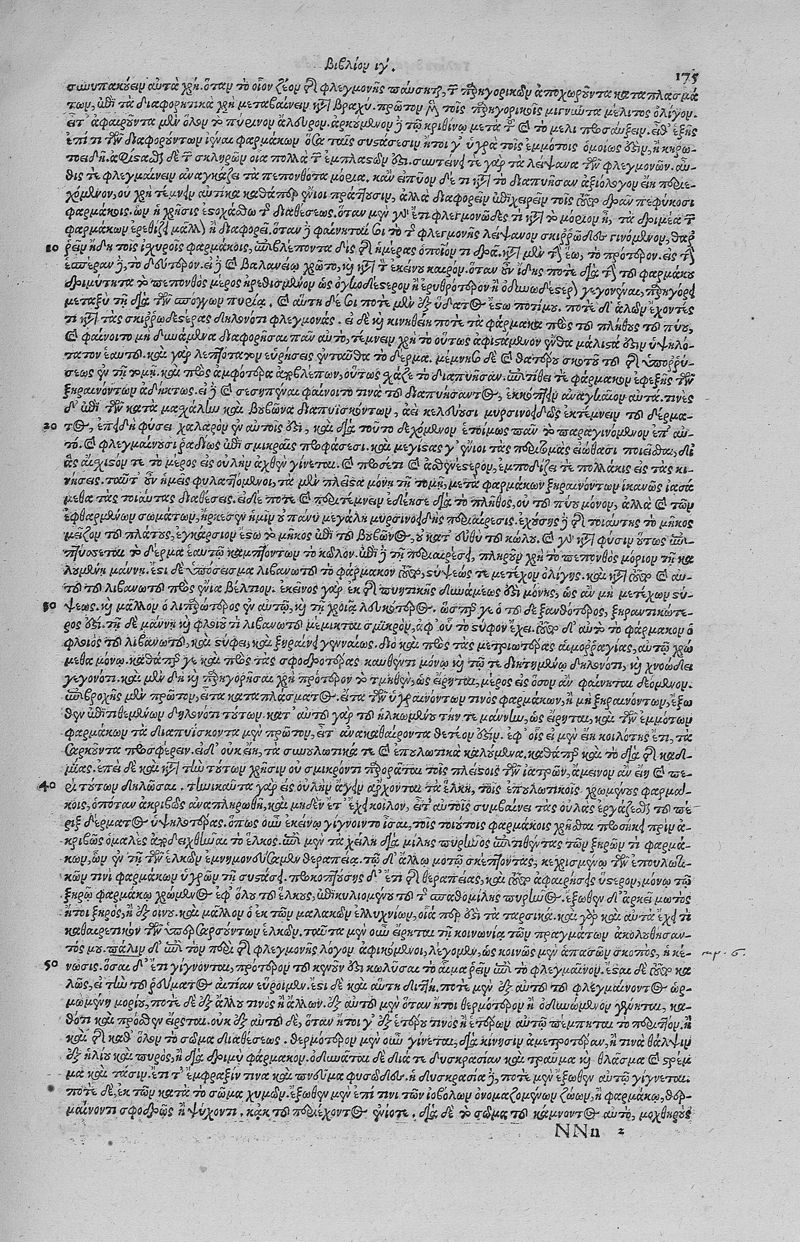 Βιβλίον ιγ'. 175
συνυπακούειν αὐτὰ χρή. ὅταν τὸ οἷον ζέον τῆς φλεγμονῆς παύσηται, τῶν παρηγορικῶν ἀποχωροῦντα καταπλασμά
των, ἐπὶ τὰ διαφορητικὰ χρὴ μεταβαίνειν κατὰ βραχύ. πρῶτον μὲν τοῖς παρηγορικοῖς μιγνύντα μέλιτος ὀλίγον.
εἶτ' ἀφαιροῦντα μὲν ὅλον τὸ πύρινον ἄλευρον. ἀρκούμενον δὲ τῷ κριθίνῳ μετὰ τοῦ καὶ τὸ μέλι προσαύξειν. εἶθ' ἑξῆς
ἐπί τι τῶν διαφορούντων ἰέναι φαρμάκων ὅσα ταῖς συστάσεσιν ἤτοι γ' ὑγρὰ τοῖς ἐμμότοις ὁμοίως ἐστὶν, ἢ κηρω-
τοειδῆ. περιίστασθαι δὲ τῶν σκληρῶν οἷα πολλὰ τῶν ἐμπλαστῶν ἐστι. συντείνει τε γὰρ τὰ λείψανα τῶν φλεγμονῶν. αὖ-
θίς τε φλεγμαίνειν ἀναγκάζει τὰ πεπονθότα μόρια. κἂν ἐκπύον δέ τι κατὰ τὸ διαπυῆσαν ἀξιόλογον εἴη περιε-
χόμενον, οὐ χρὴ τέμνειν αὐτίκα καθάπερ ἔνιοι πράττουσιν, ἀλλὰ διαφορεῖν ἐπιχειρεῖν τοῖς τοῦτο δρᾶν πεφυκόσι
φαρμάκοις. ὧν ἡ χρῆσις ἐστοχάσθω τῆς διαθέσεως. ὅταν μὲν γὰρ ἔτι φλεγμονῶδές τι κατὰ τὸ μόριον ᾖ, τὰ δριμέα τῶν
φαρμάκων ἐρεθίζει μᾶλλον ἢ διαφορεῖ. ὅταν δὲ φαίνηταί σοι τὸ τῆς φλεγμονῆς λείψανον σκιρρῶδες γινόμενον, θαρ
10 ρεῖν ἤδη τοῖς ἰσχυροῖς φαρμάκοις, ἐπιβλέποντα δὶς τῆς ἡμέρας ὁποῖόν τι δρᾷ. κατὰ μὲν τὴν ἕω, τὸ πρότερον. εἰς τὴν
ἑσπέραν δὲ, τὸ δεύτερον. εἰ δὲ καὶ βαλανείῳ χρῷτο, καὶ κατὰ τὸν ἐκείνου καιρόν. ὅταν οὖν ἴδῃς ποτὲ διὰ τὴν τοῦ φαρμάκου
δριμύτητα τὸ πεπονθὸς μέρος ἠρεθισμένον ὡς ὀγκωδέστερον ἢ ἐρυθρότερον ἢ ὀδυνωδέστερον γεγονέναι, παρηγόρει
μεταξὺ τῇ διὰ τῶν σπόγγων πυρίᾳ. καὶ αὕτη δέ σοι ποτὲ μὲν ἐξ ὕδατος ἔστω ποτίμου. ποτὲ δὲ ἁλῶν ἔχοντές
τι κατὰ τὰς σκιρρωδεστέρας δηλονότι φλεγμονάς. εἰ δὲ καὶ νικηθείη ποτὲ τὰ φάρμακα πρὸς τοῦ πλήθους τοῦ πύου,
καὶ φαίνοιτο μὴ δυνάμενα διαφορῆσαι πᾶν αὐτὸ, τέμνειν χρὴ τὸ οὕτως ἀφιστάμενον ἔνθα μάλιστά ἐστιν ὑψηλό-
τατον ἑαυτοῦ. καὶ γὰρ λεπτότατον εὑρήσεις ἐνταῦθα τὸ δέρμα. μέμνησο δὲ καὶ θατέρου σκοποῦ τοῦ τῆς ὑπορρύ-
σεως ἐν τῇ τομῇ. καὶ πρὸς ἀμφότερα ἀποβλέπων, οὕτως σχάζε τὸ διαπυῆσαν. ἐπιτίθει τε φάρμακον ἐφεξῆς τῶν
ξηραινόντων ἀδήκτως. εἰ δὲ καὶ σεσηπέναι φαίνοιτό τινα τοῦ διαπυήσαντος, ἐκκόπτειν ἀναγκαῖον αὐτά. τινὲς
δ' ἐπὶ τῶν κατὰ μασχάλην καὶ βουβῶνα διαπυϊσκόντων, ἀεὶ κελεύουσι μυρσινοειδῶς ἐκτέμνειν τοῦ δέρμα-
20 τος, ἐπειδὴ φύσει χαλαρὸν ἐν αὐτοῖς ἐστι, καὶ διὰ τοῦτο δεχόμενον ἑτοίμως πᾶν τὸ παραγινόμενον ἐπ' αὐ-
τό. καὶ φλεγμαίνουσι ῥᾳδίως ἐπὶ σμικραῖς προφάσεσι. καὶ μεγίστας γ' ἔνιοι τὰς περιτομὰς εἰώθασι ποιεῖσθαι, δι'
ἃς αἴσχιόν τε τὸ μέρος εἰς οὐλὴν ἀχθὲν γίνεται. καὶ προσέτι καὶ ἀσθενέστερον, ἐμποδίζει τε πολλάκις εἰς τὰς κι-
νήσεις. ταῦτ' οὖν ἡμεῖς φυλαττόμενοι, τὰ μὲν πλεῖστα μόνῃ τῇ τομῇ, μετὰ φαρμάκων ξηραινόντων ἱκανῶς ἰασά
μεθα τὰς τοιαύτας διαθέσεις. εἰ δέ ποτε καὶ περιτέμνειν ἐδέησε διὰ τὸ πλῆθος, οὐ τοῦ πύου μόνον, ἀλλὰ καὶ τῶν
ἐφθαρμένων σωμάτων, ἤρκεσεν ἡμῖν οὐ πάνυ μεγάλη μυρσινοειδὴς περιαίρεσις. ἐχούσης δὲ τῆς τοιαύτης τὸ μῆκος
μεῖζον τοῦ πλάτους, ἐγκάρσιον ἔστω τὸ μῆκος ἐπὶ τοῦ βουβῶνος, οὐ κατ' εὐθὺ τοῦ κώλου. καὶ γὰρ κατὰ φύσιν οὕτως ἐπι-
πτύσσεται τὸ δέρμα ἑαυτῷ καμπτόντων τὸ κῶλον. ἐπὶ δὲ τῇ περιαιρέσει, πληροῦν χρὴ τὸ πεπονθὸς μόριον τῇ κα
λουμένῃ μάννῃ. ἔστι δὲ ὑπόσεισμα λιβανωτοῦ τὸ φάρμακον τοῦτο, στύψεώς τε μετέχον ὀλίγης. καὶ κατὰ τοῦτο καὶ αὐ-
τοῦ τοῦ λιβανωτοῦ πρὸς ἔνια βέλτιον. ἐκεῖνος γὰρ ἐκπυητικῆς δυνάμεώς ἐστι μόνης, ὡς ἂν μὴ μετέχων στύ-
30 ψεως. καὶ μᾶλλον ὁ λιπαρώτερος ἐν αὐτῷ, καὶ τῇ χροιᾷ λευκότερος. ὥσπερ γε ὁ τοῦδε ξανθότερος, ξηραντικώτε-
ρός ἐστι. τῇ δὲ μάννῃ καὶ φλοιοῦ τι λιβανωτοῦ μέμικται σμικρὸν, ἀφ' οὗ τὸ στῦφον ἔχει. τοῦτο δ' αὐτὸ τὸ φάρμακον ὁ
φλοιὸς τοῦ λιβανωτοῦ, καὶ στύφει, καὶ ξηραίνει γενναίως. διὸ καὶ πρὸς τὰς μετριωτέρας αἱμορραγίας, αὐτῷ χρώ
μεθα μόνῳ. καθάπερ γε καὶ πρὸς τὰς σφοδροτέρας καυθέντι μόνῳ καὶ τῷ τε διητημένῳ δηλονότι, καὶ χνοώδει
γεγονότι. καὶ μὲν δὴ καὶ παρηγορῆσαι χρὴ πρότερον τὸ τμηθὲν, ὡς εἴρηται, μέρος εἰς ὅσον ἂν φαίνηται δεόμενον.
ἐπιβροχῆς μὲν πρῶτον, εἶτα καταπλάσματος. εἶτα τῶν ὑγραινόντων τινὸς φαρμάκων, ἢ μὴ ξηραινόντων, ἔξω
θεν ἐπιτιθεμένων δηλονότι τούτων. κατ' αὐτὸ γὰρ τὸ ἡλκωμένον τήν τε μάννην, ὡς εἴρηται, καὶ τῶν ἐμμότων
φαρμάκων τὰ διαπυΐσκοντα μὲν πρῶτον, εἶτ' ἀνακαθαίροντα θετέον ἐστίν. ἐφ' οἷς εἰ μὲν εἴη κοιλότης ἔτι, τὰ
σαρκοῦντα προσφέρειν. εἰ δ' οὐκ εἴη, τὰ συνουλωτικά τε καὶ ἐπουλωτικὰ καλούμενα, καθάπερ καὶ τὸ διὰ τῆς καδ-
μίας. ἐπεὶ δὲ καὶ κατὰ τὴν τούτων χρῆσιν οὐ σμικρόν τι παρορᾶται τοῖς πλείστοις τῶν ἰατρῶν, ἄμεινον ἂν εἴη καὶ πε-
40 ρὶ τούτων δηλῶσαι. τηνικαῦτα γὰρ εἰς οὐλὴν ἄγειν ἄρχονται τὰ ἕλκη, τοῖς ἐπουλωτικοῖς χρώμενοι φαρμά-
κοις, ὁπόταν ἀκριβῶς ἀναπληρωθῇ, καὶ μηδὲν ἔτ' ἔχῃ κοῖλον, εἶτ' αὐτοῖς συμβαίνει τὰς οὐλὰς ἐργάζεσθαι τοῦ πέ-
ριξ δέρματος ὑψηλοτέρας. ὅπως οὖν ἐκείνῳ γίγνοιντο ἴσαι, τοῖς τοιούτοις φαρμάκοις χρῆσθαι προσήκει πρὶν ἀ-
κριβῶς ὁμαλὲς ἀποδειχθῆναι τὸ ἕλκος. ἐπὶ μὲν τὰ χείλη διὰ μίλης πυρῆνος ἐπιτιθέντας τῶν ξηρῶν τι φαρμά-
κων, ὧν ἐν τῇ τῶν ἑλκῶν ἐμνημονεύσαμεν θεραπείᾳ. τῷ δ' ἄλλῳ μοτῷ σκέποντας, κεχρισμένῳ τῶν ἐπουλωτι-
κῶν τινι φαρμάκων ὑγρῶν τῇ συστάσει. προκοπτούσης δ' ἔτι τῆς θεραπείας, καὶ τοῦτο ἀφαιρήσεις ὕστερον, μόνῳ τῷ
ξηρῷ φαρμάκῳ χρώμενος ἐφ' ὅλου τοῦ ἕλκους, ἐπικυλιομένου τοῦ τῆς σπαθομίλης πυρῆνος. ἔξωθεν δ' ἀρκεῖ μωτὸς
ἤτοι ξηρὸς, ἢ ἐξ οἴνου. καὶ μᾶλλον ὁ ἐκ τῶν μαλακῶν ἐλλυχνίων, οἷά πέρ ἐστι τὰ ταρσικά. καὶ γὰρ καὶ αὐτὰ ἔχει τι
καθαιρετικὸν τῶν ὑπερσαρκούντων ἑλκῶν. ταῦτα μὲν οὖν εἴρηται τῇ κοινωνίᾳ τῶν πραγμάτων ἀκολουθήσαν-
τός μου. πάλιν δ' ἐπὶ τὸν περὶ τῆς φλεγμονῆς λόγον ἀφικόμενοι, λέγομεν, ὡς κοινῶς μὲν ἁπασῶν σκοπὸς, ἡ κέ-
50 νωσις. ὅσαι δ' ἔτι γίγνονται, πρότερον τοῦ κενοῦν ἐστι κωλῦσαι τὸ αἷμα ῥεῖν ἐπὶ τὸ φλεγμαῖνον. ἔσται δὲ τοῦτο κα
λῶς, εἰ τὴν τοῦ ῥεύματος αἰτίαν εὕροιμεν. ἔστι δὲ καὶ αὕτη διττή. ποτὲ μὲν ἐξ αὐτοῦ τοῦ φλεγμαίνοντος ὁρ-
μωμένη μορίου, ποτὲ δὲ ἐξ ἄλλου τινὸς ἢ ἄλλων. ἐξ αὐτοῦ μὲν ὅταν ἤτοι θερμότερον ἢ ὀδυνώμενον γένηται, κα-
θότι καὶ πρόσθεν εἴρηται. οὐκ ἐξ αὐτοῦ δὲ, ὅταν ἤτοι γ' ἐξ ἑτέρου τινὸς ἢ ἑτέρων αὐτῷ πέμπηται τὸ περιττὸν. ἢ
καὶ τῆς καθ' ὅλον τὸ σῶμα διαθέσεως. θερμότερον μὲν οὖν γίνεται, διὰ κίνησιν ἀμετροτέραν, ἤ τινα θάλψιν
ἐξ ἡλίου καὶ πυρὸς, ἢ διὰ δριμὺ φάρμακον. ὀδυνᾶται δὲ διά τε δυσκρασίαν καὶ τραῦμα καὶ θλάσμα καὶ στρέμ
μα καὶ τάσιν. ἔτι τ' ἔμφραξίν τινα καὶ πνεῦμα φυσῶδες. ἡ δυσκρασία δὲ, ποτὲ μὲν ἔξωθεν αὐτῷ γίγνεται.
ποτὲ δὲ, ἐκ τῶν κατὰ τὸ σῶμα χυμῶν. ἔξωθεν μὲν ἐπί τινι τῶν ἰοβόλων ὀνομαζομένων ζώων, ἢ φαρμάκῳ, θερ-
μαίνοντι σφοδρῶς ἢ ψύχοντι. κἀκ τοῦ περιέχοντος ἐνίοτε. διὰ δὲ τὸ σῶμα τοῦ κάμνοντος αὐτὸ, μοχθηροῦ
NNn 2